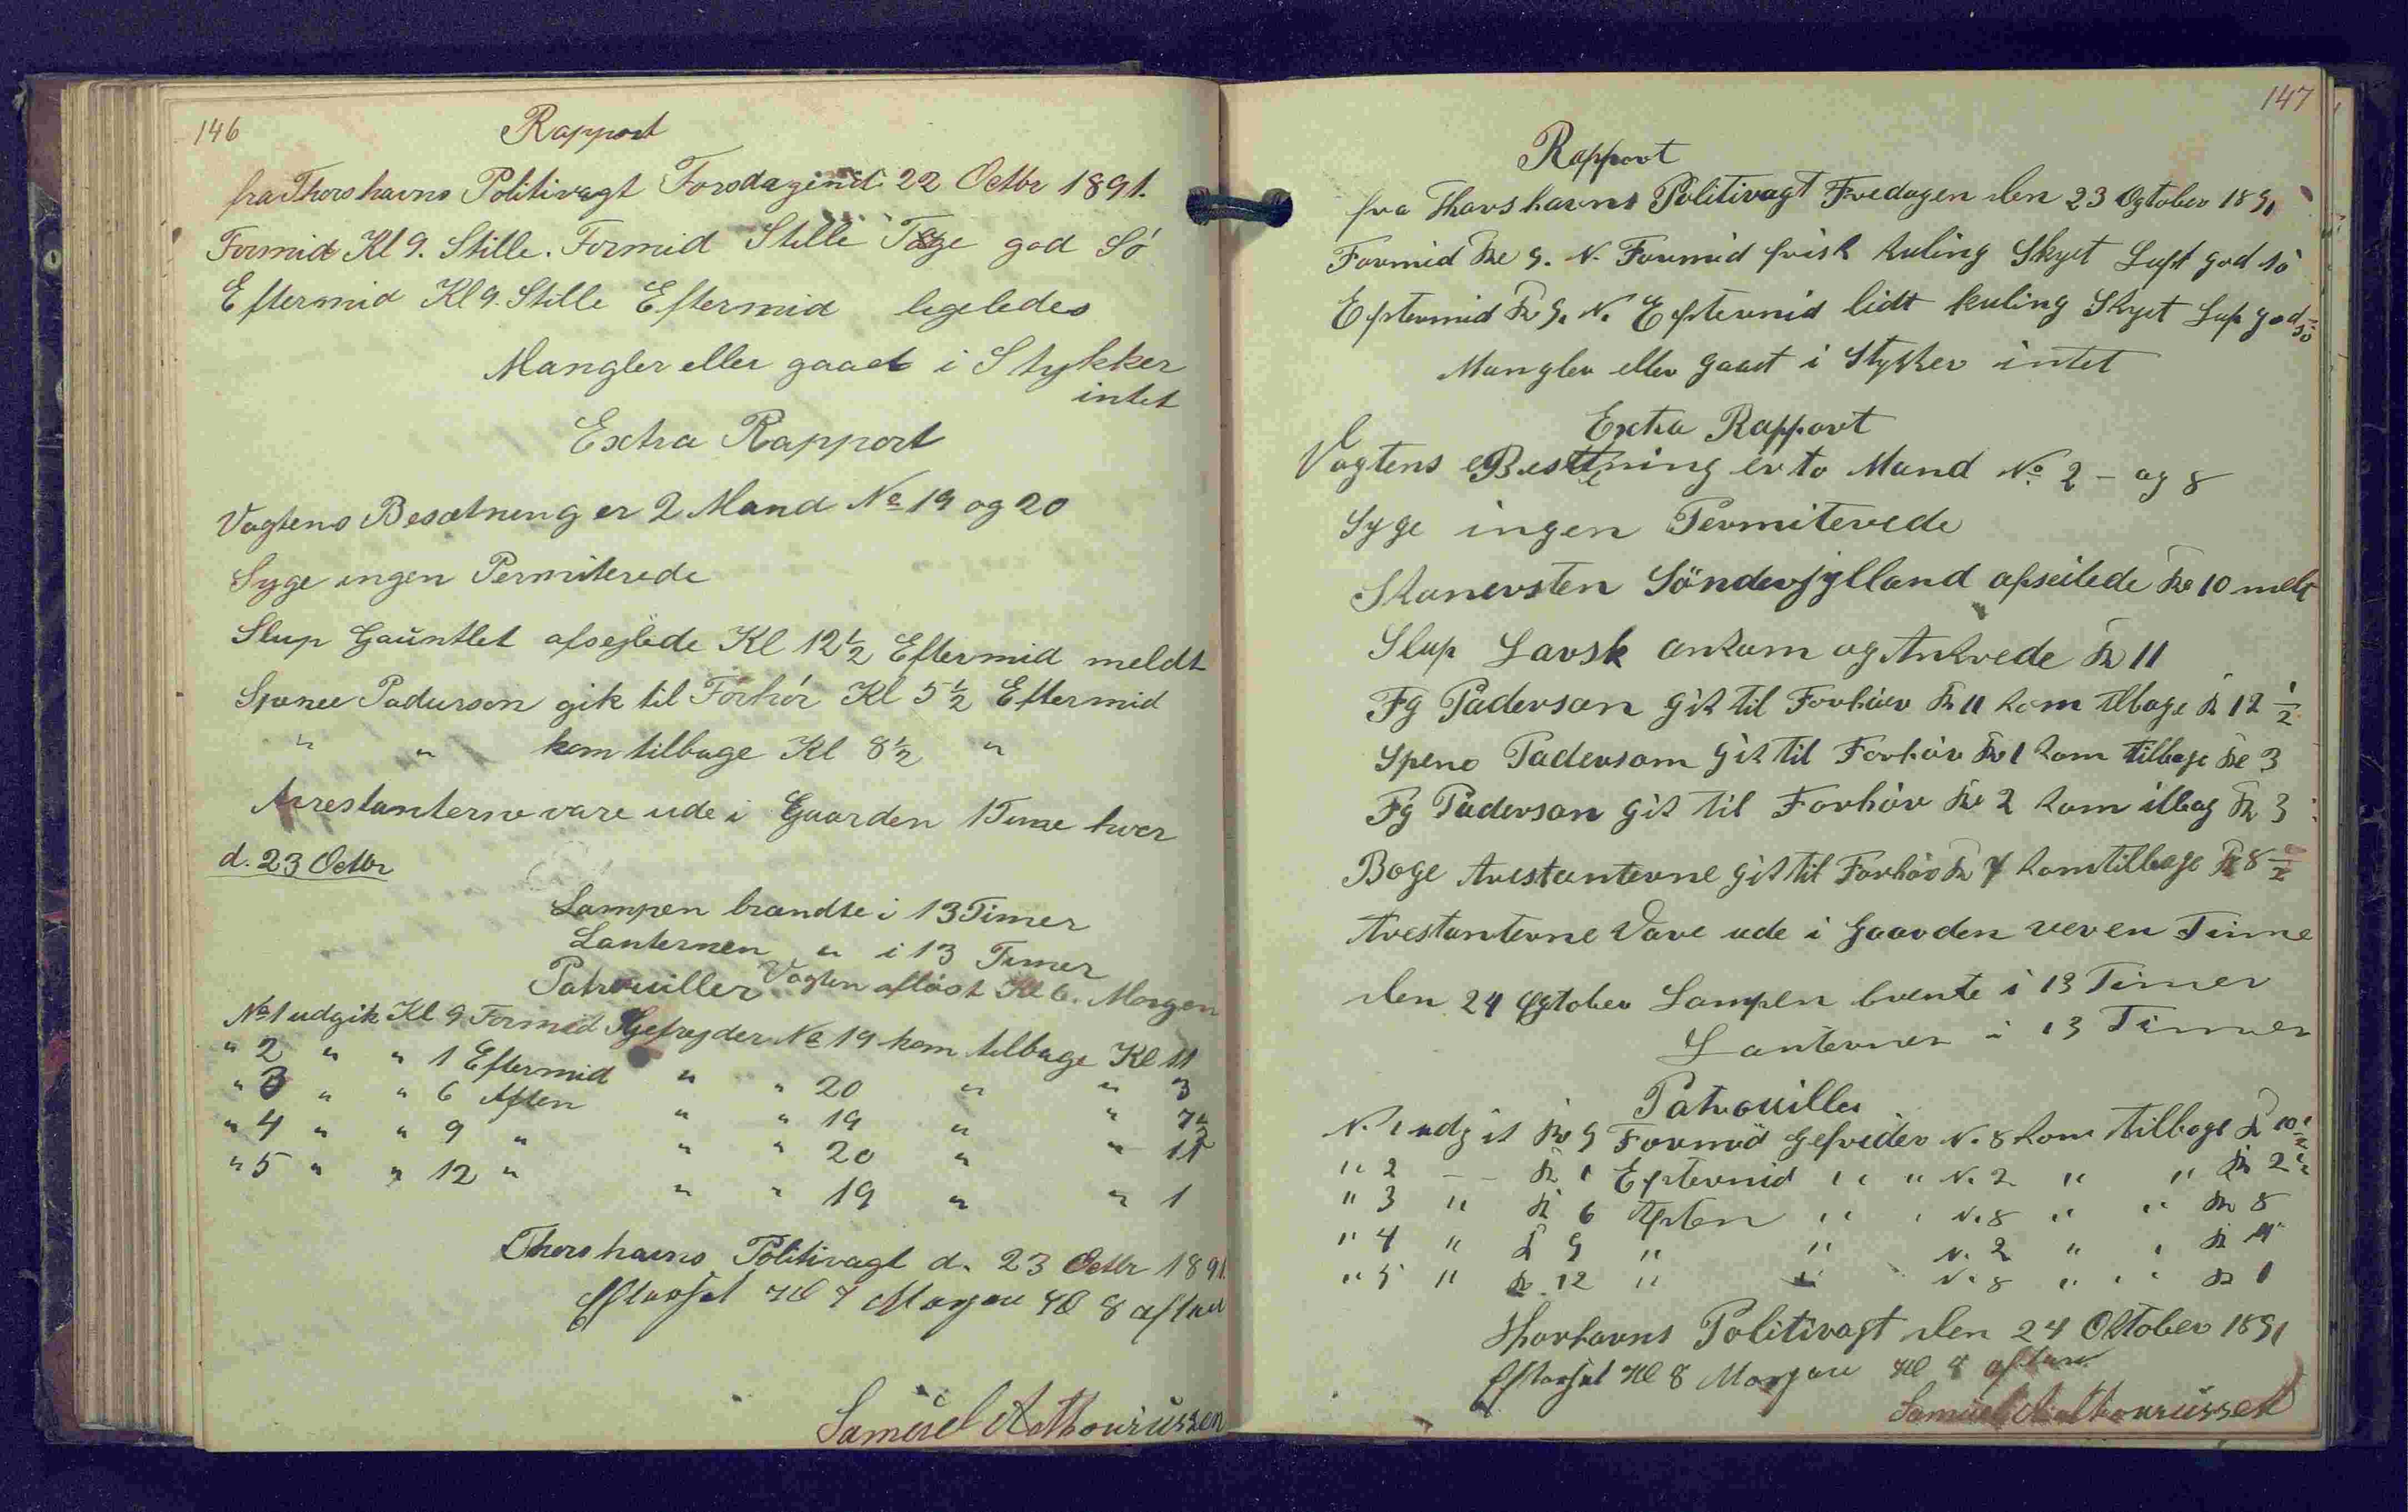 146
Rapport
fra Thorshavns Politivagt Torsdagen d. 22 Octbr 1891.
Formid Kl 9. Stille. Formid Stille Tage god Sö
Eftermid Kl 9. Stille Eftermid ligeledes
Mangler eller gaaet i Stykker
intet
Extra Rapport
Vagtens Besætning er 2 Mand No 19 og 20
Syge ingen Permiterede
Slup Gauntlet afsejlede Kl 12½ Eftermid meldt
Spence Padurson gik til Forhör Kl 5½ Eftermid
" " kom tilbage Kl 8½ "
Arrestanterne vare ude i Gaarden 1 Time hver
d. 23 Octbr
Lampen brændte i 13 Timer
Lanternen " i 13 Timer
Patrouiller Vagten aflöst Kl 6. Morgen
No 1 udgik Kl 9 Formid Gefrejder No 19 kom tilbage Kl 11
" 2 " " 1 Eftermid " " 20 " " 3
" 3 " " 6 Aften " " 19 " " 7½
" 4 " " 9 " " " 20 " " 11
" 5 " " 12 " " " 19 " " 1
Thorshavns Politivagt d. 23 Octbr 1891
Eftersset Kl 7 Morgen Kl 8 aften
147
Rapport
fra Thorshavns Politivagt Fredagen den 23 Ogtober 1891
Formid Kl 9. N. Formid frisk kuling Skyet Luft god sö
Eftermid Kl 9. N. Eftermid lidt kuling Skyet Luft god sö
Mangler eller gaaet i Stykker intet
Extra Rapport
Vagtens Besetning er to Mand No 2 - og 8
Syge ingen Permiterede
Skonersten Sönderjylland afseilede Kl 10 meldt
Slup Larsk ankom og Ankrede Kl 11
Fg Paderson gik til Forhör Kl 11 kom tilbage Kl 12½
Spens Padersom gik til Forhör Kl 1 kom tilbage Kl 3
Fg Paderson gik til Forhör Kl 2 kom ilbag Kl 3
Boge Arestanterne gik til Forhör Kl 7 kom tilbage Kl 8½
Arestanterne Vare ude i Gaarden ver en Timme
den 24 Ogtober Lampen brente i 13 Timer
Lanternen i 13 Timmer
Patrouiller
N. 1 udgik Kl 9 Formid Gefreider N. 8 kom tilbage Kl 10½
" 2 - - Kl 1 Eftermid " " N. 2 " " Kl 2½
" 3 " Kl 6 Aften " " N. 8 " " Kl 8
" 4 " Kl 9 " " N. 2 " " Kl 11
" 5 " Kl 12 " " N. 8 " " Kl 1
Thorhavns Politivagt den 24 Oktober 1891
Eftersset Kl 8 Morgen Kl 8 aften